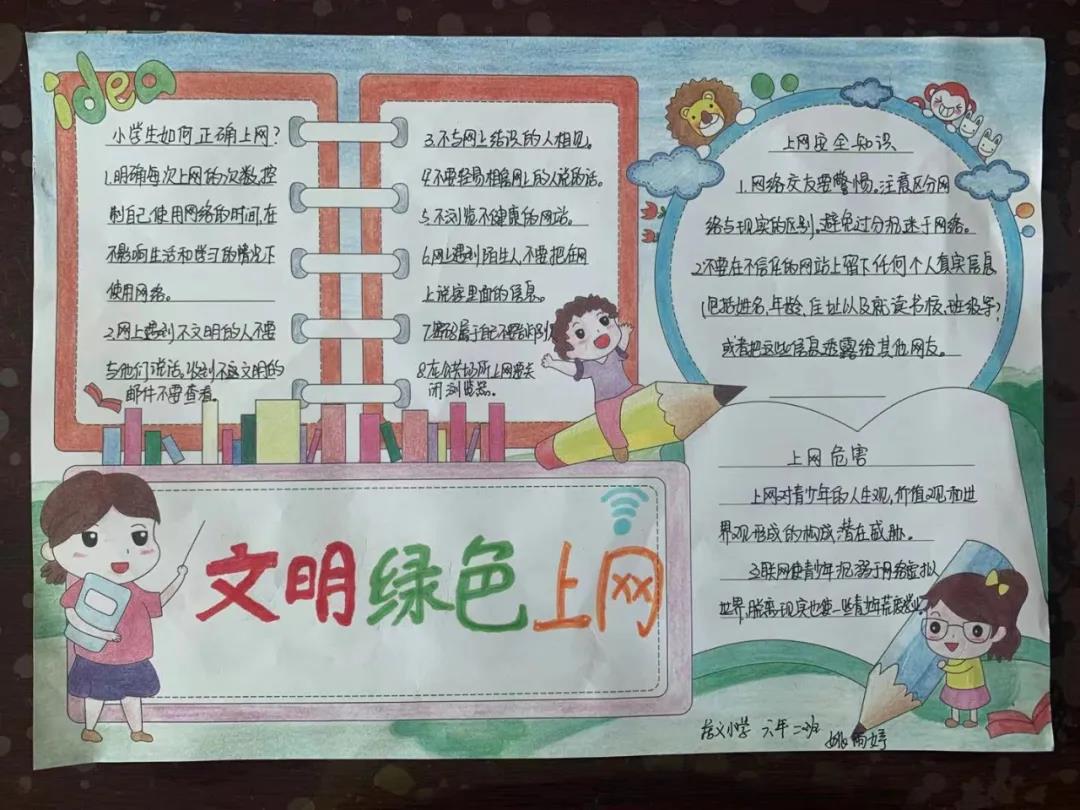 idea
小学生如何正确上网?
1.明确每次上网的次数,控
制自己使用网络的时间,在
不影响生活和学习的情况下
使用网络。
2.网上遇到不文明的人不要
与他们说话,收到不文明的
邮件不要查看。
3.不与网上结识的人相见。
4.不要轻易相信网上的人说的话。
5.不浏览不健康的网站。
6.网上遇到陌生人,不要把在网
上说家里面的信息。
8.在公共场所上网要关
闭浏览器。
上网安全知识
1.网络交友要警惕,注意区分网
络与现实的区别,避免过分沉迷于网络。
2.不要在不信任的网站上留下任何个人真实信息
(包括姓名,年龄,住址以及就读书校,班级等)
或者把这些信息透露给其他网友。
文明绿色上网
上网危害
上网对青少年的人生观,价值观和世
界观形成的构成潜在威胁。
互联网使青少年沉溺于网络虚拟
世界,脱离现实也使一些青少年荒废学业。
小学 六年二班
姚雨婷